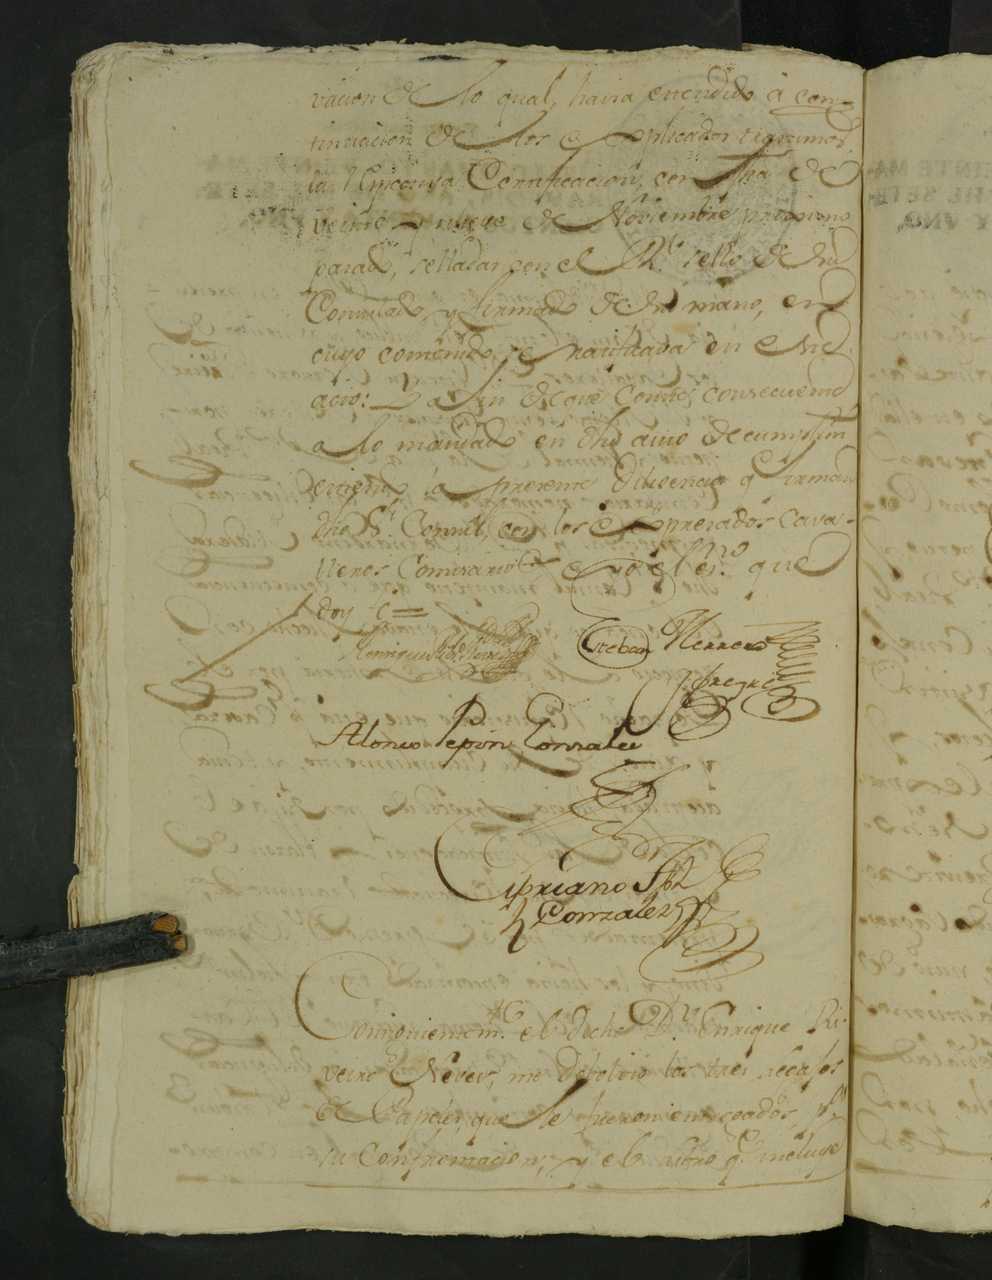 vacion de lo qual, havia estendido á con-
tinuacion de los explicados terminos
la Certificacion, con fha de
veinte y nueve de Noviembre proximo
pasado, selladas con el Rl. sello de su
Consulado, y firmado de su mano, en
cuyo contenido, se ratificava en el ne
acio: Y a fin de que Conste, consecuente
a lo mandado en dho auto de cumplim
la presente diligencia q firman
dho Sr. Consul, con los expresados Cava-
lleros Comisarios e Yo el esno. que
doy fe=
Henrique Ribeiro Neves
Esteban Herrero
Alonso Pepin Gonzalez
Cipriano Jph
Gonzalez
Consiguientemte. el dicho Dn. Enrique Ri-
veiro Neves, me debolvio los tres legajos
de Papeles, que le fueron entregados, pa
su Confrontacion, y el libro qe. incluye